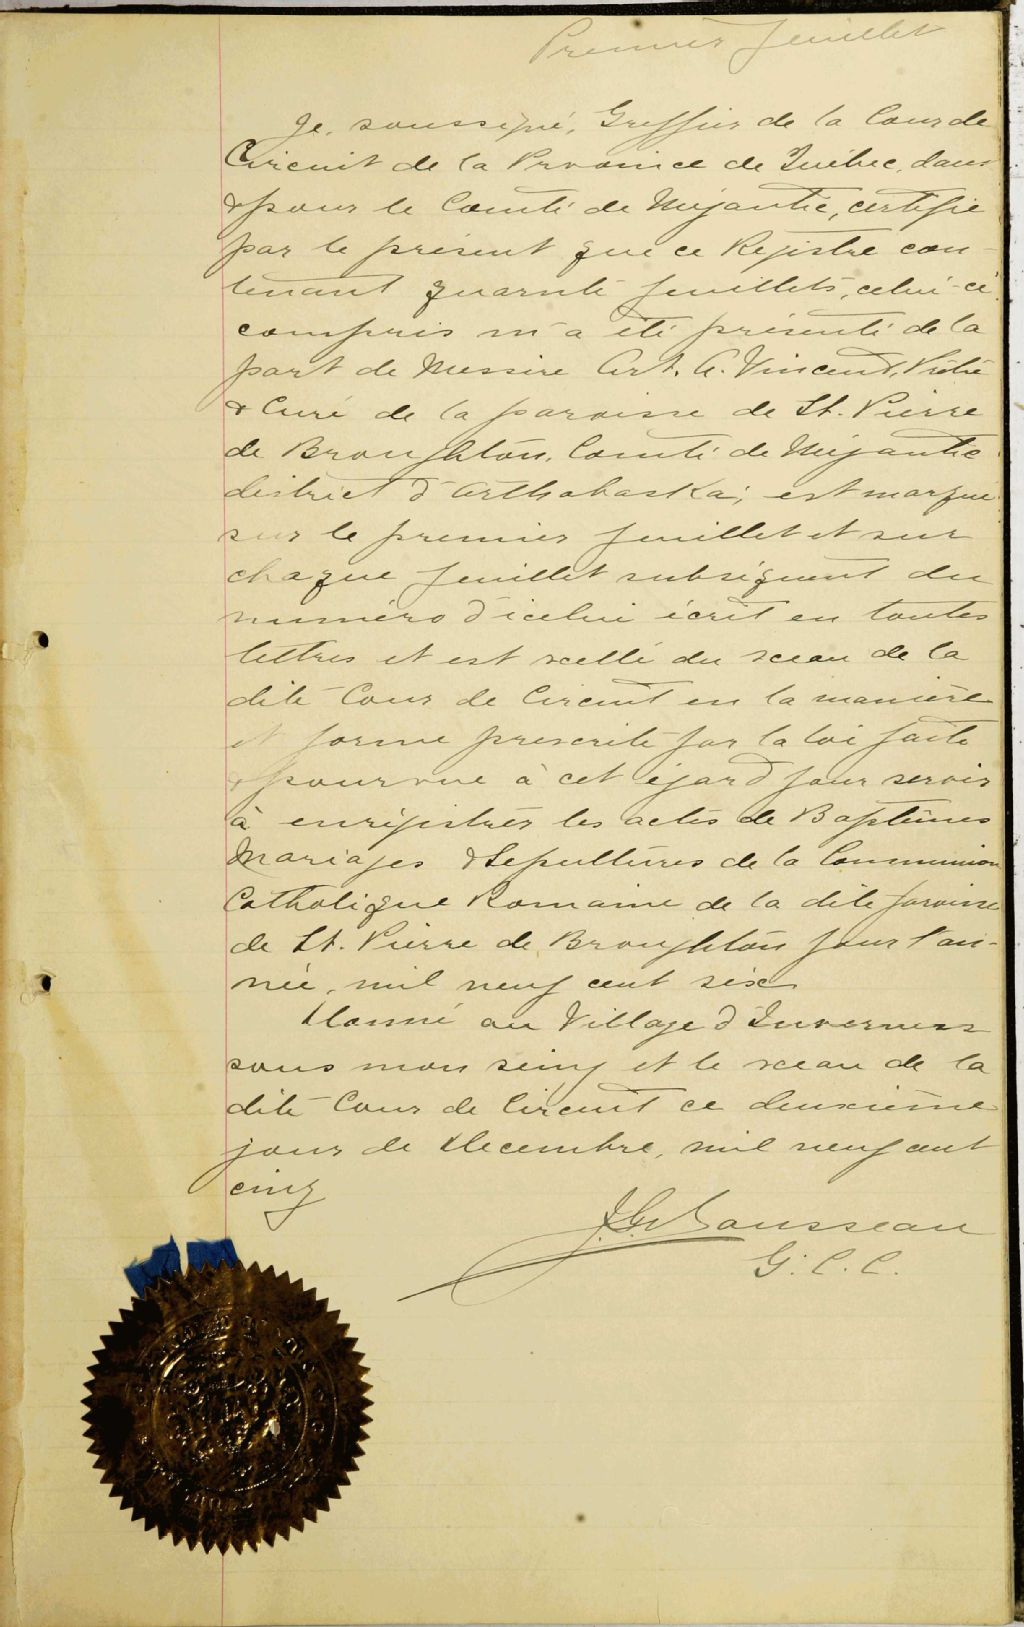 Premier feuillet
Je, soussigné, Greffier de la Cour de
Circuit de la Province de Québec, dans
& pour le Comté de Mégantic, certifie
par le présent que ce Registre con-
tenant quarante feuillets, celui-ci
compris m'a été présenté de la
part de Messire Art. A. Vincent, Prêtre
& Curé de la paroisse de St. Pierre
de Broughton, Comté de Mégantic
district d'Arthabaska; est marqué
sur le premier feuillet et sur
chaque feuillet subséquent du
numéro d'icelui écrit en toutes
lettres et est scellé du sceau de la
dite Cour de Circuit en la manière
et forme prescrite par la loi faite
& pourvue à cet égard pour servir
à enrégistrer les actes de Baptêmes
Mariages & Sepultures de la Communion
Catholique Romaine de la dite paroisse
de St. Pierre de Broughton pour l'an-
née, mil neuf cent six
Donné au Village d'Inverness
sous mon seing et le sceau de la
dite Cour de Circuit ce deuxième
jour de Decembre, mil neuf cent
cinq
Rousseau
G. C. C.